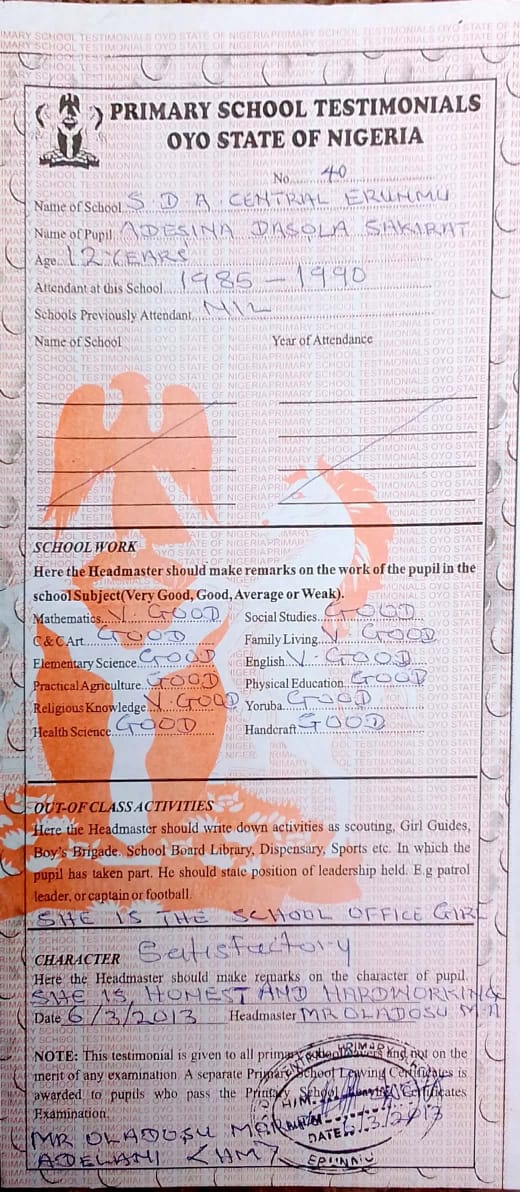 PRIMARY SCHOOL TESTIMONIALS
OYO STATE OF NIGERIA
No. 40
Name of School S D A CENTRAL ERUNMU
Name of Pupil ADESINA DASOLA SAKIRAT
Age 12 YEARS
Attendant at this School 1985 – 1990
Schools Previously Attendant NIL
Name of School Year of Attendance
SCHOOL WORK
Here the Headmaster should make remarks on the work of the pupil in the
school Subject(Very Good, Good, Average or Weak).
Mathematics V. GOOD Social Studies GOOD
C & C Art GOOD Family Living V. GOOD
Elementary Science GOOD English V. GOOD
Practical Agriculture GOOD Physical Education GOOD
Religious Knowledge V. GOOD Yoruba GOOD
Health Science GOOD Handcraft GOOD
OUT-OF CLASS ACTIVITIES
Here the Headmaster should write down activities as scouting, Girl Guides,
Boy's Brigade. School Board Library, Dispensary, Sports etc. In which the
pupil has taken part. He should state position of leadership held. E.g patrol
leader, or captain or football.
SHE IS THE SCHOOL OFFICE GIRL
CHARACTER Satisfactory
Here the Headmaster should make remarks on the character of pupil.
SHE IS HONEST AND HARDWORKING
Date 6/3/2013 Headmaster MR OLADOSU M. A
NOTE: This testimonial is given to all primary school leavers and not on the
merit of any examination. A separate Primary School Leaving Certificates is
awarded to pupils who pass the Primary School Leaving Certificates
Examination.
MR OLADOSU
ADELANI (HM)
PRIMARY
H/M
DATE 6/3/2013
ERUNMU